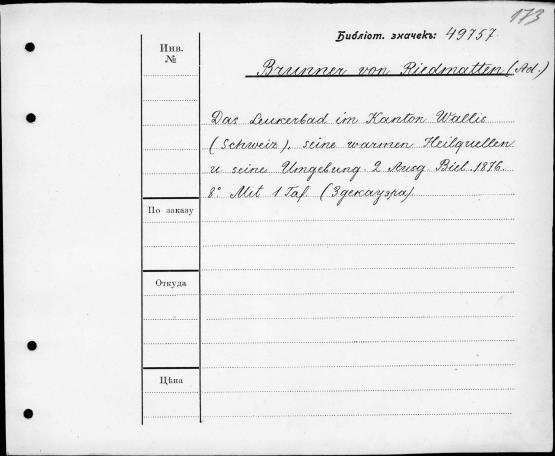 173
Библіот. значекъ: 49757.
Инв. №
Brunner von Riedmatten (Ad.)
Das Leukerbad im Kanton Wallis
(Schweiz), seine warmen Heilquellen
u seine Umgebung 2 Ausg Biel. 1876.
8° Mit 1 Taf (Здекауэра)
По заказу
Откуда
Цѣна